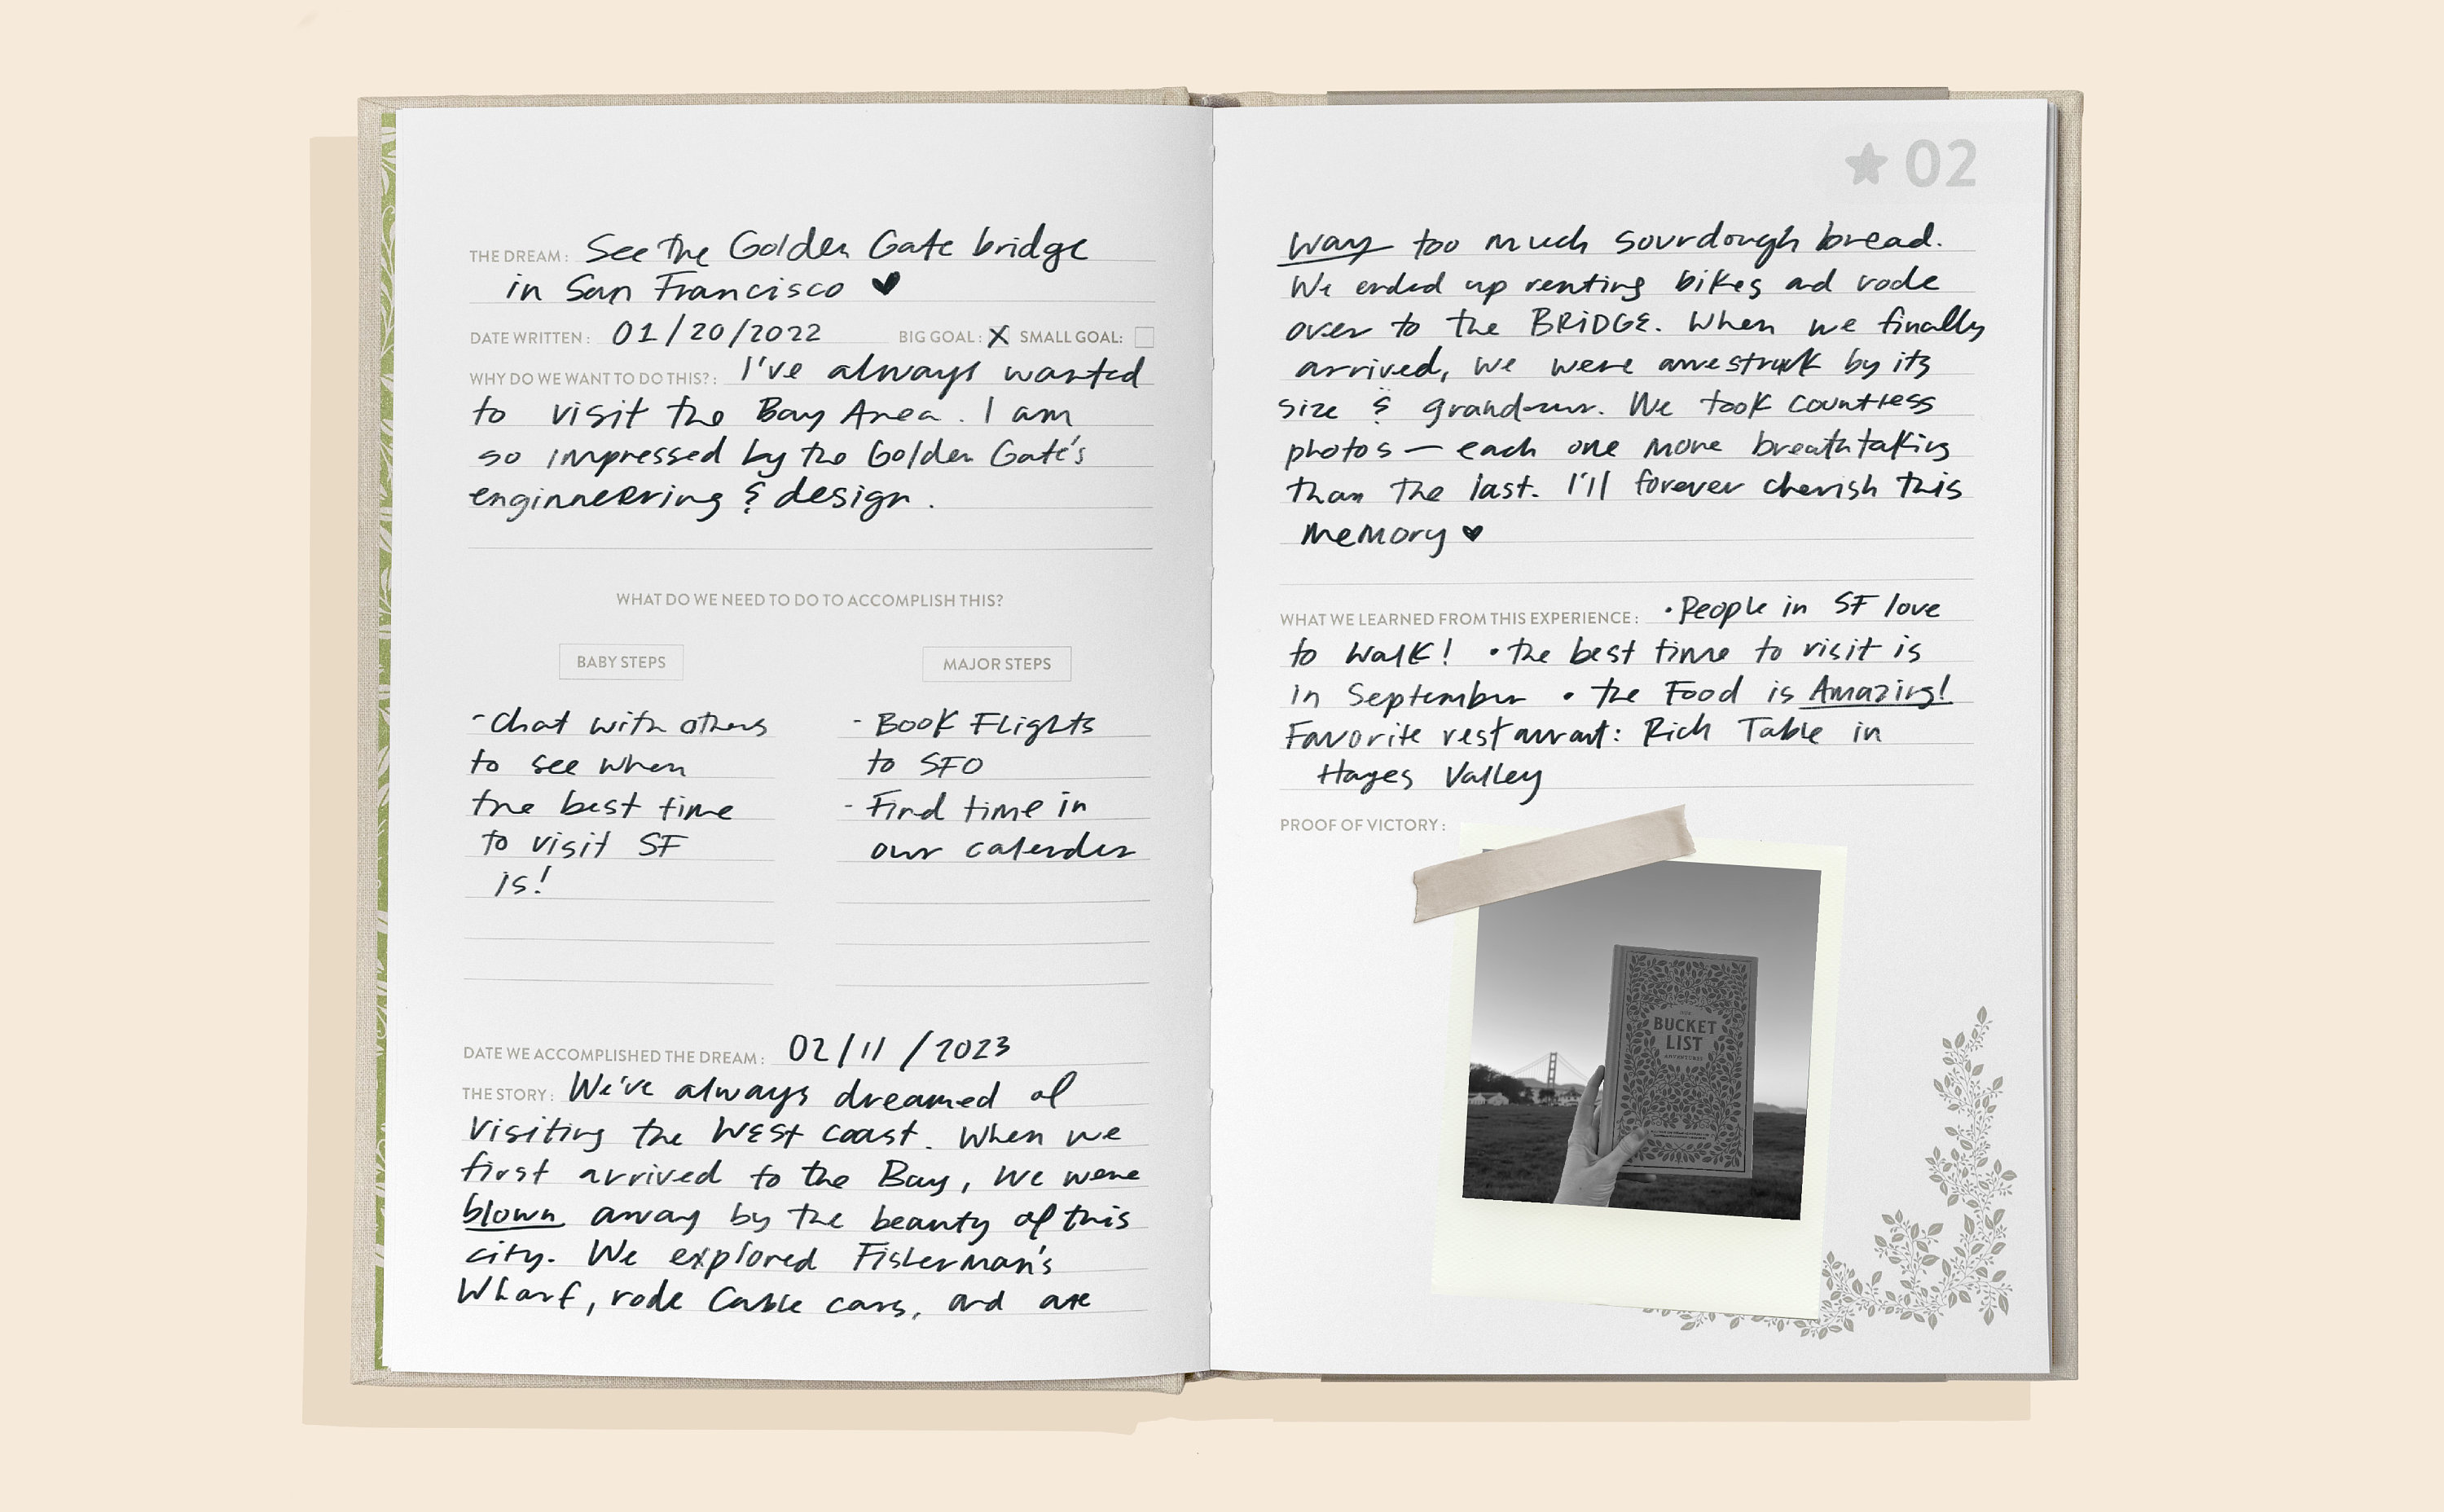 THE DREAM: See the Golden Gate bridge
in San Francisco ♥
DATE WRITTEN: 01/20/2022 BIG GOAL: X SMALL GOAL:
WHY DO WE WANT TO DO THIS?: I've always wanted
to visit the Bay Area. I am
so impressed by the Golden Gate's
enginneering & design.
WHAT DO WE NEED TO DO TO ACCOMPLISH THIS?
BABY STEPS
- Chat with others
to see when
the best time
to visit SF
is!
MAJOR STEPS
- Book Flights
to SFO
- Find time in
our calender
DATE WE ACCOMPLISHED THE DREAM: 02/11/2023
THE STORY: We've always dreamed of
visiting the WEST coast. When we
first arrived to the Bay, we were
blown away by the beauty of this
city. We explored Fisherman's
Wharf, rode Cable cars, and ate
★ 02
way too much sourdough bread.
We ended up renting bikes and rode
over to the BRiDGE. When we finally
arrived, we were awestruck by its
size & grandeur. We took countless
photos — each one more breathtaking
than the last. I'll forever cherish this
memory ♥
WHAT WE LEARNED FROM THIS EXPERIENCE: • People in SF love
to walk! • the best time to visit is
in September • the Food is Amazing!
Favorite restaurant: Rich Table in
Hayes Valley
PROOF OF VICTORY:
BUCKET
LIST